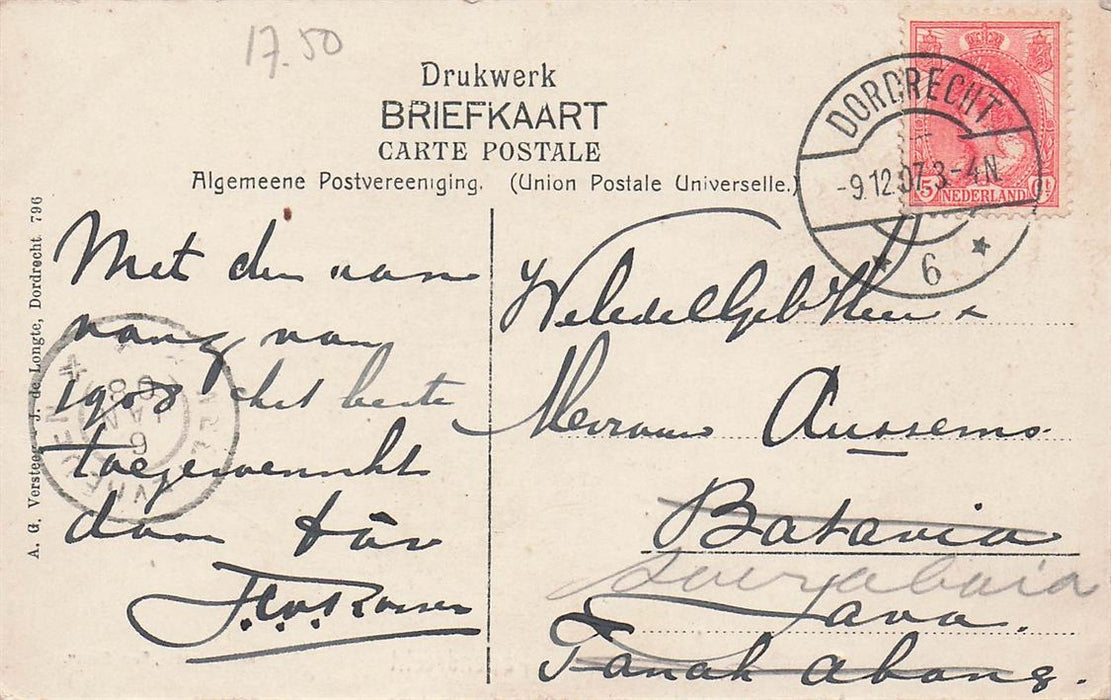 17.50
Drukwerk
BRIEFKAART
CARTE POSTALE
Algemeene Postvereeniging. (Union Postale Universelle.)
DORDRECHT
-9.12.07 3-4N
6
5 NEDERLAND Ct
A. G. Versteeg - J. de Longte, Dordrecht 796
Met den aan
vang van
1908 het beste
toegewenscht
door
WeledelGeb Heer &
Mevrouw Aussems
Batavia
Soerabaia
Java.
Tanah Abang.
6
JAN
08